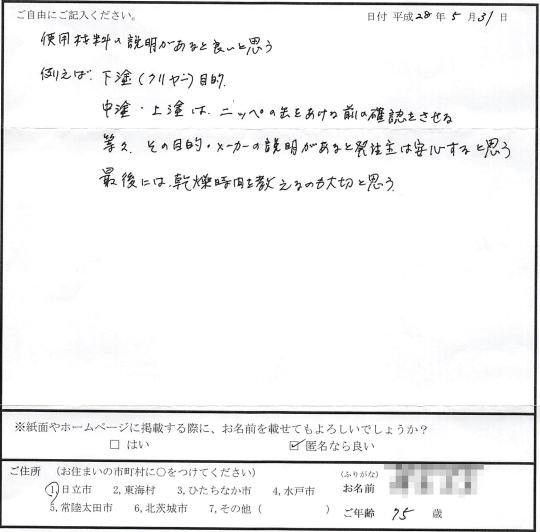 ご自由にご記入ください。 日付 平成28年5月31日
使用材料の説明があると良いと思う
例えば、下塗(クリヤー)目的、
中塗・上塗は、ニッペの缶をあける前の確認をさせる
等々、その目的・メーカーの説明があると発注主は安心すると思う
最後には、乾燥時間を教えるのも大切と思う。
※紙面やホームページに掲載する際に、お名前を載せてもよろしいでしょうか？
□ はい ☑ 匿名なら良い
ご住所 (お住まいの市町村に○をつけてください) (ふりがな)
1,日立市 2,東海村 3,ひたちなか市 4,水戸市 お名前
5,常陸太田市 6,北茨城市 7,その他( ) ご年齢 75 歳